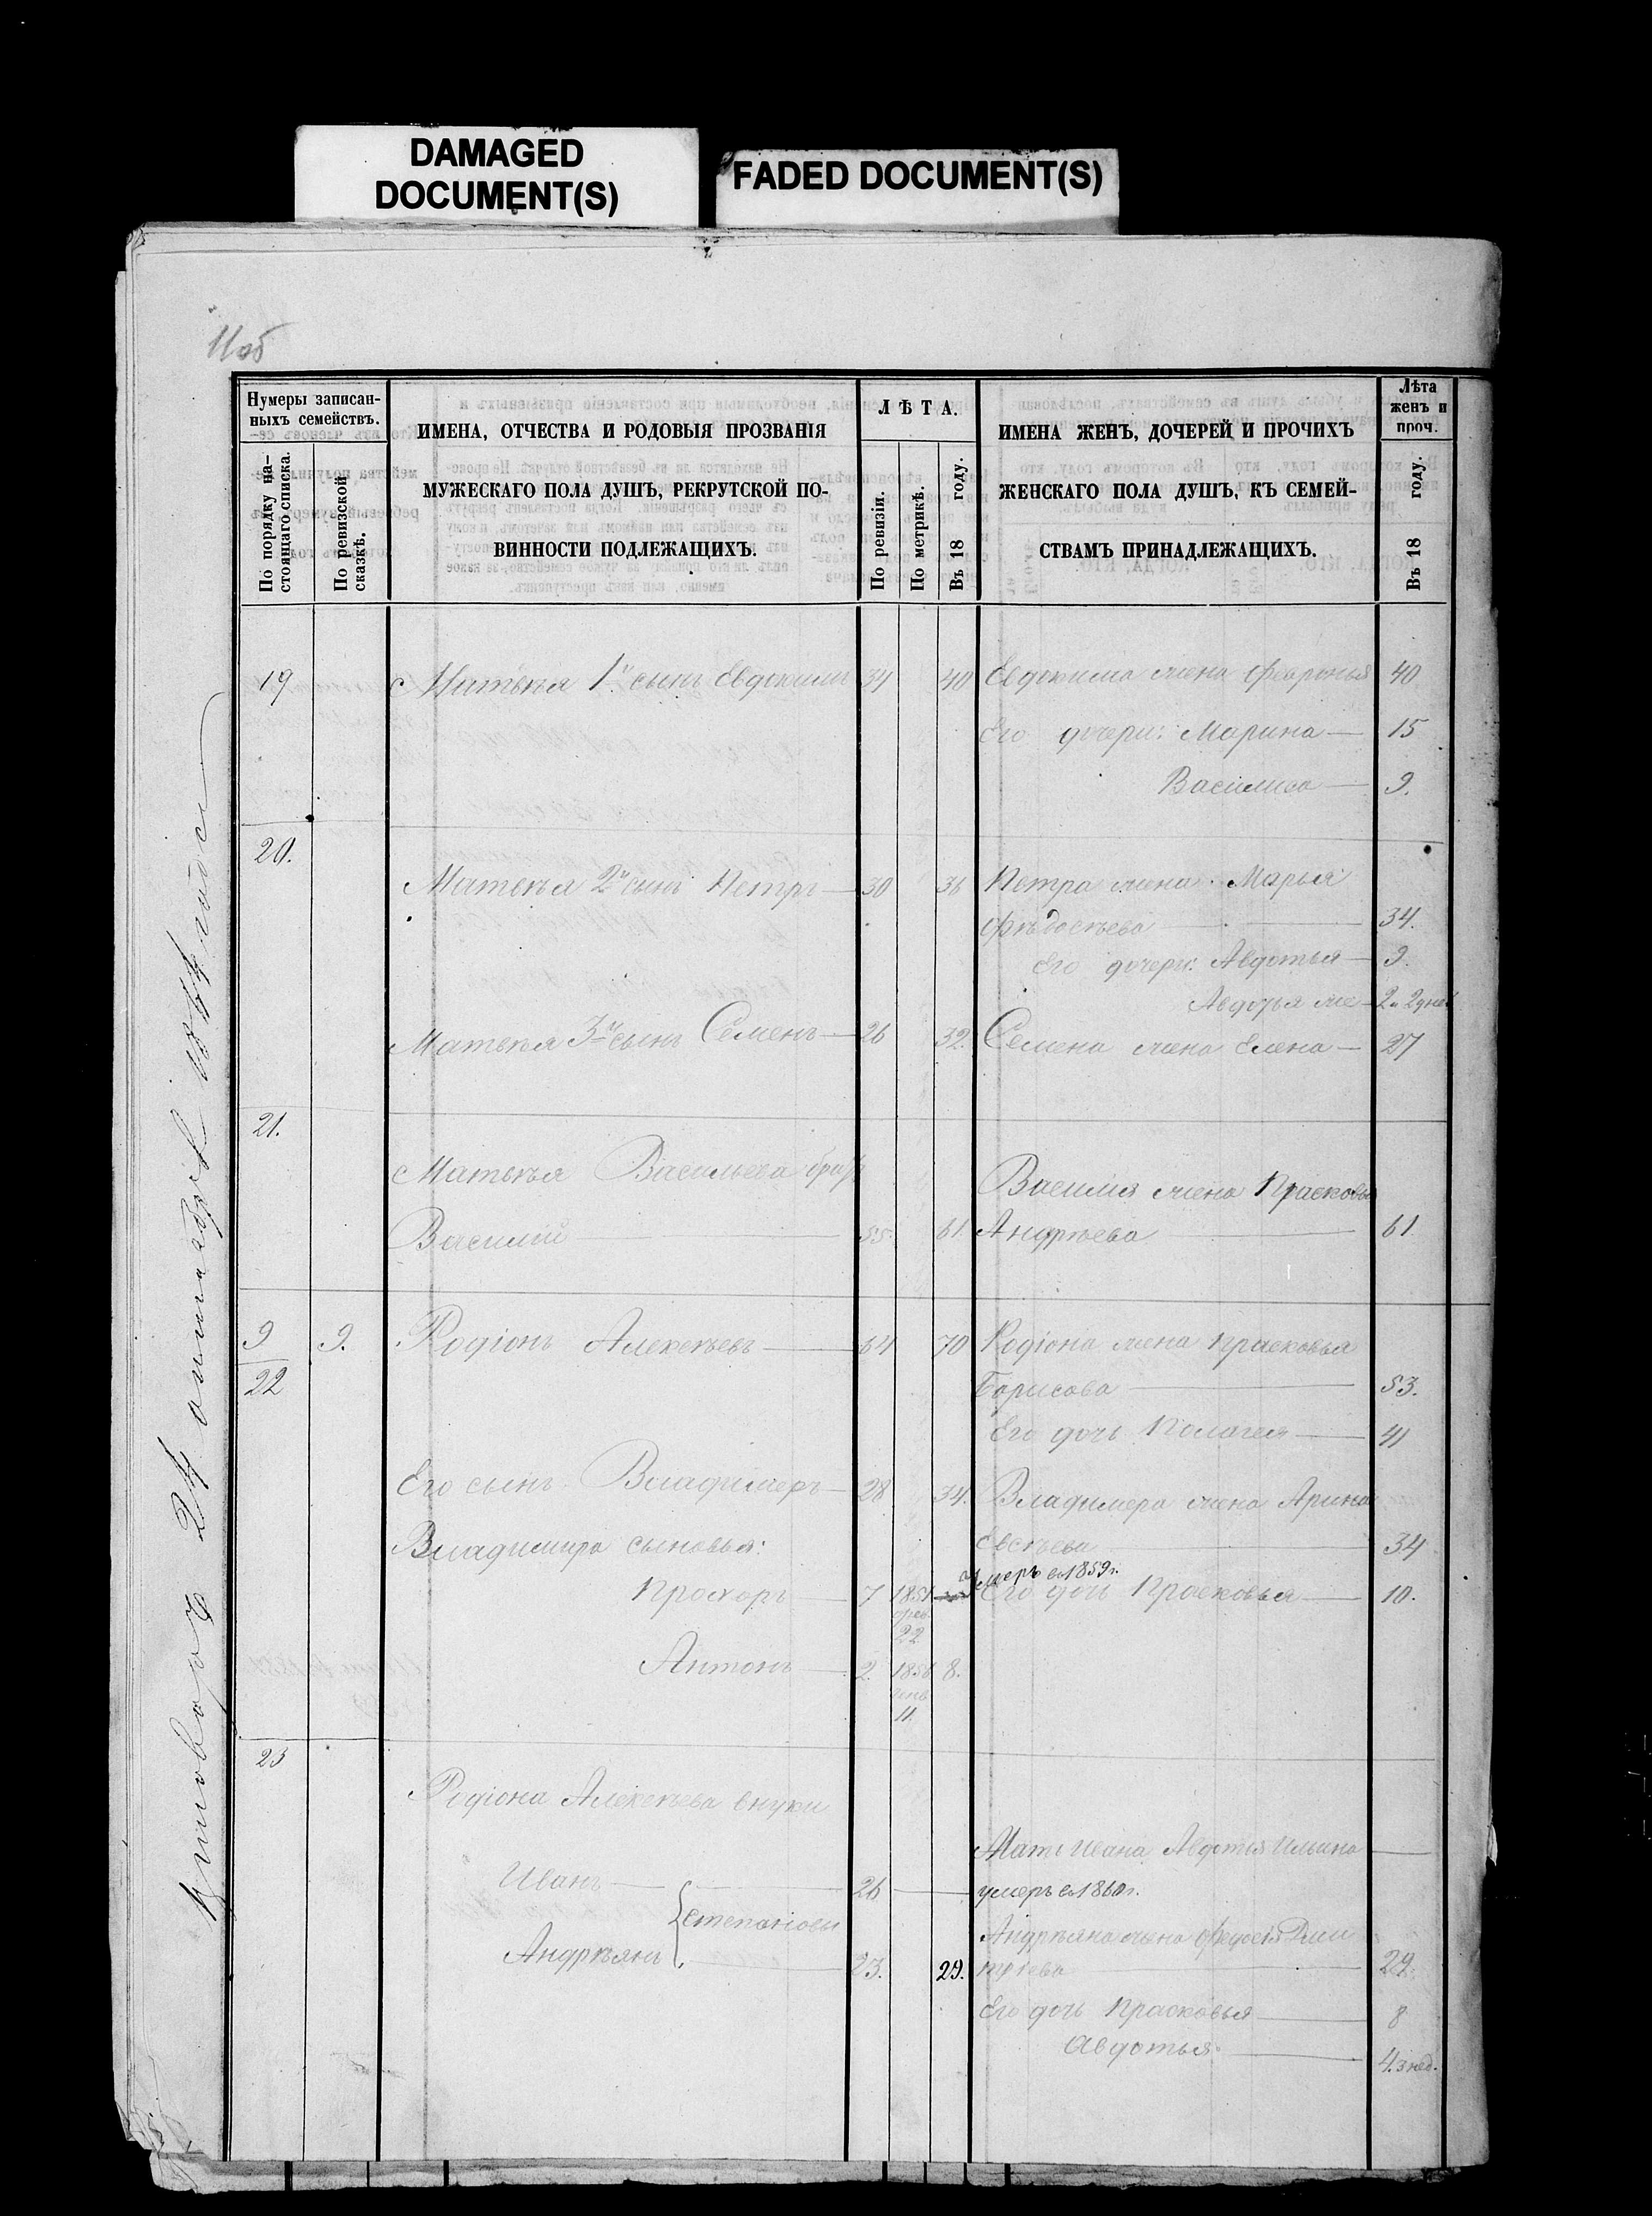 DAMAGED
DOCUMENT(S)
FADED DOCUMENT(S)
11об
Нумеры записан-
ныхъ семействъ.
По порядку на-
стоящаго списка.
По ревизской
сказкѣ.
ИМЕНА, ОТЧЕСТВА И РОДОВЫЯ ПРОЗВАНІЯ
МУЖЕСКАГО ПОЛА ДУШЪ, РЕКРУТСКОЙ ПО-
ВИННОСТИ ПОДЛЕЖАЩИХЪ.
ЛѢТА.
По ревизіи.
По метрикѣ.
Въ 18 году.
ИМЕНА ЖЕНЪ, ДОЧЕРЕЙ И ПРОЧИХЪ
ЖЕНСКАГО ПОЛА ДУШЪ, КЪ СЕМЕЙ-
СТВАМЪ ПРИНАДЛЕЖАЩИХЪ.
Лѣта
женъ и
проч.
Въ 18 году.
19 Матвѣя 1й сынъ Евдокимъ 34 40 Евдокима жена Февронья 40
Его дочери: Марина — 15
Василиса — 9.
20.
Матвѣя 2й сынъ Петръ — 30 36 Петра жена Марья
Федосѣева — 34.
Его дочери: Авдотья — 9.
Авдотья же — 2 и 2 дней
Матвѣя 3й сынъ Семенъ — 26 32. Семена жена Елена — 27
21.
Матвѣя Васильева братъ
Василій — 55. 61
Василія жена Прасковья
Андрѣева — 61
9 9. Родіонъ Алексѣевъ — 64 70 Родіона жена Прасковья
22 Борисова — 53.
Его дочь Полагея — 41
Его сынъ Владимеръ — 28 34. Владимера жена Арина
Евсѣева — 34
Владимира сыновья:
Прохоръ — 7 1851 фев. 22
умеръ въ 1859г.
Его дочь Прасковья — 10.
Антонъ — 2. 1856 8.
11.
23
Родіона Алексѣева внуки
Мать Ивана Авдотья Ильина —
Иванъ — 26 — умеръ въ 1860г.
Степановы
Андрѣянъ — 23. 29.
Андрѣяна жена Федосія Дми
тріева — 29.
Его дочь Прасковья — 8
Авдотья — 4. 3 нед.
24
года